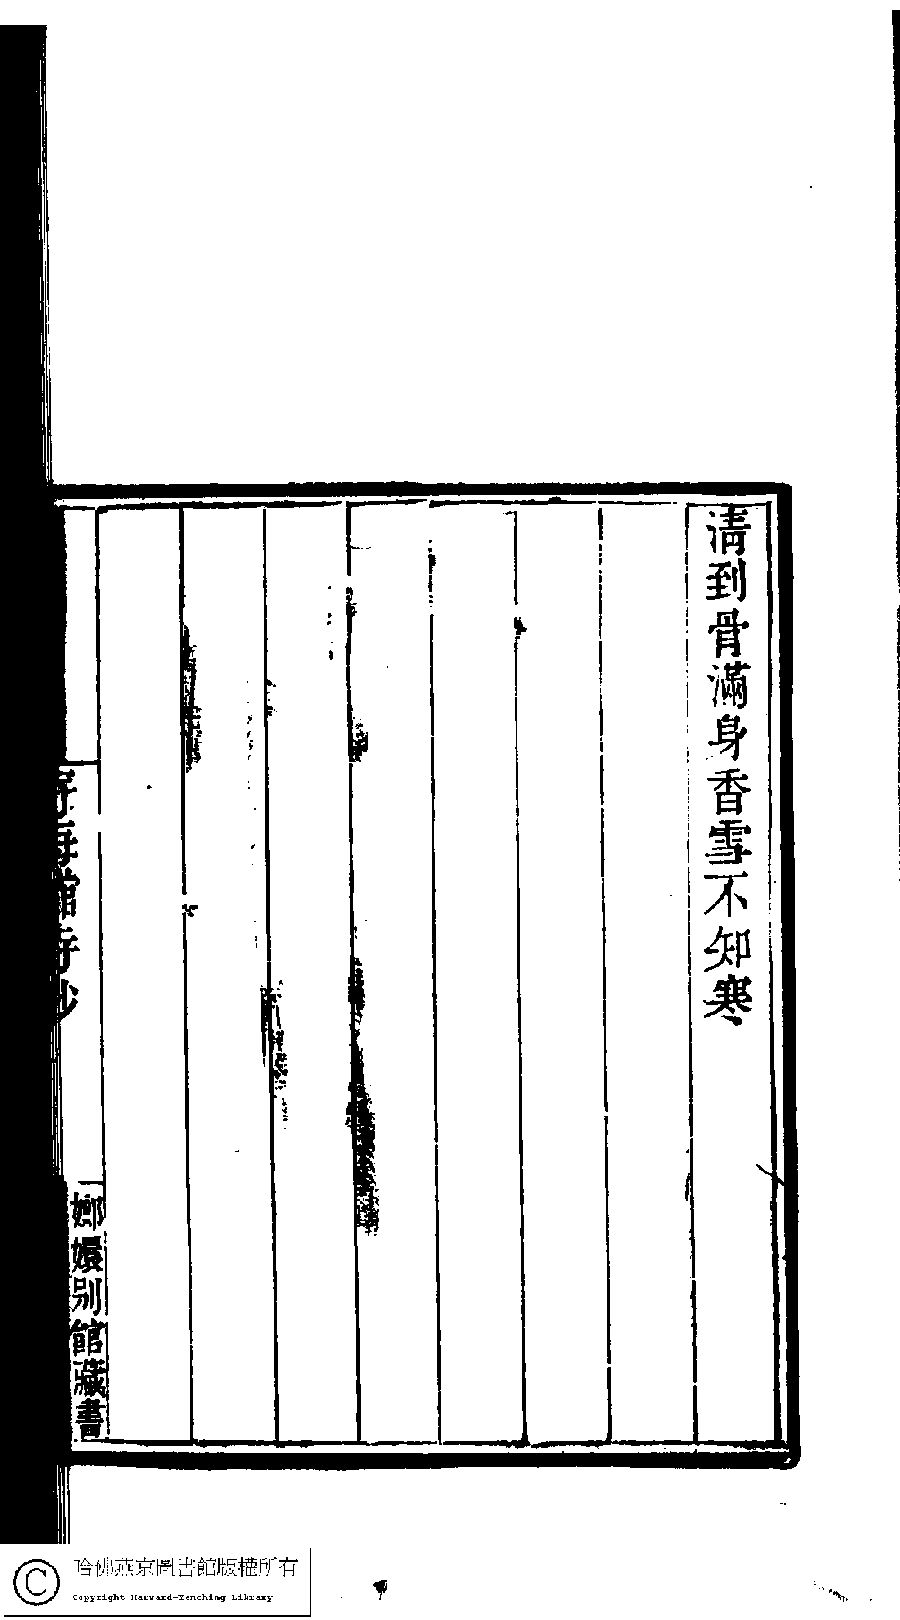 清到骨滿身香雪不知寒
館存鈔
嫏嬛别館藏書
哈佛燕京圖書館版權所有
Copyright Harvard-Yenching Library